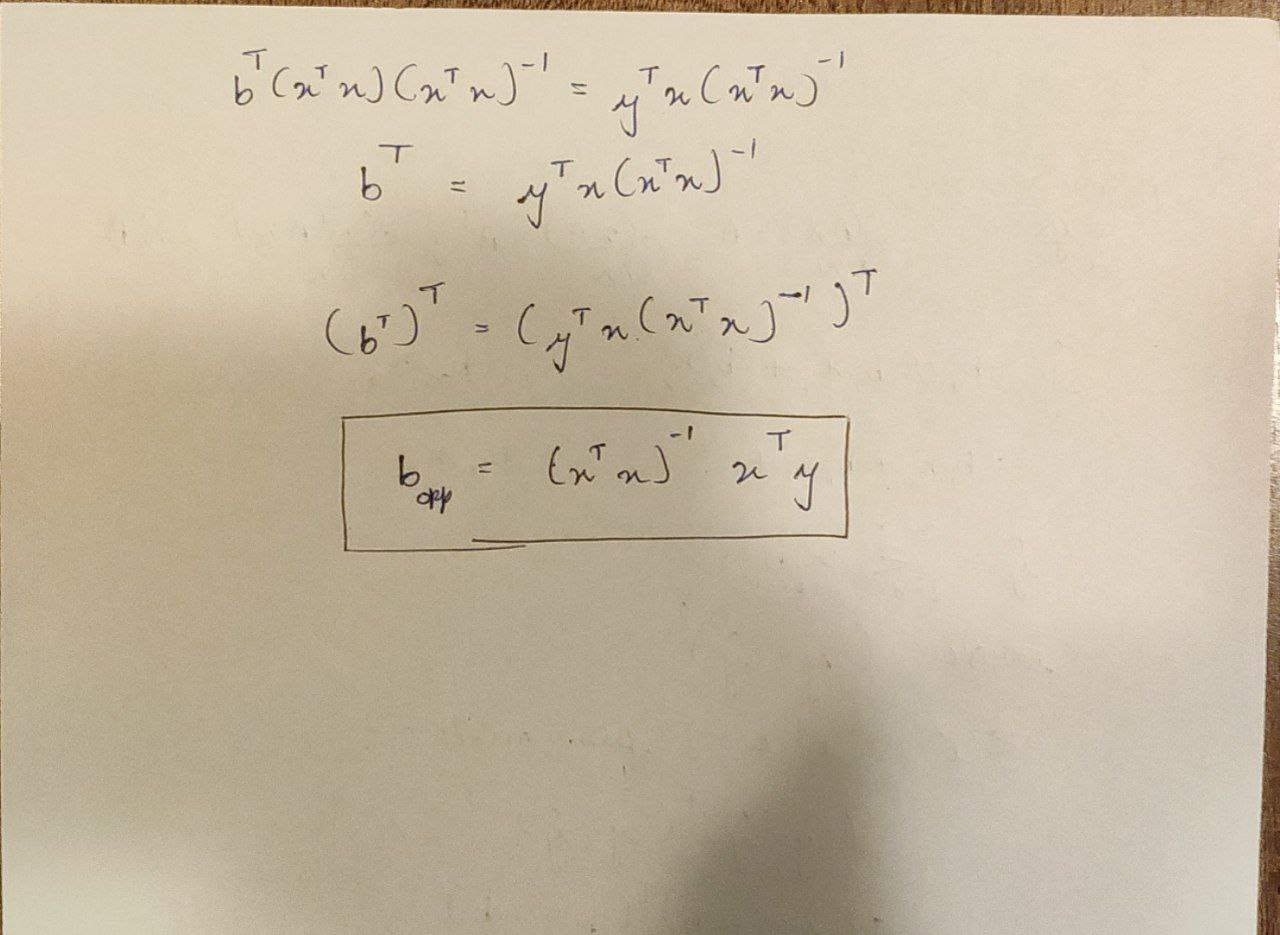 bᵀ(xᵀx)(xᵀx)⁻¹ = yᵀx(xᵀx)⁻¹
bᵀ = yᵀx(xᵀx)⁻¹
(bᵀ)ᵀ = (yᵀx(xᵀx)⁻¹)ᵀ
b = (xᵀx)⁻¹ xᵀy